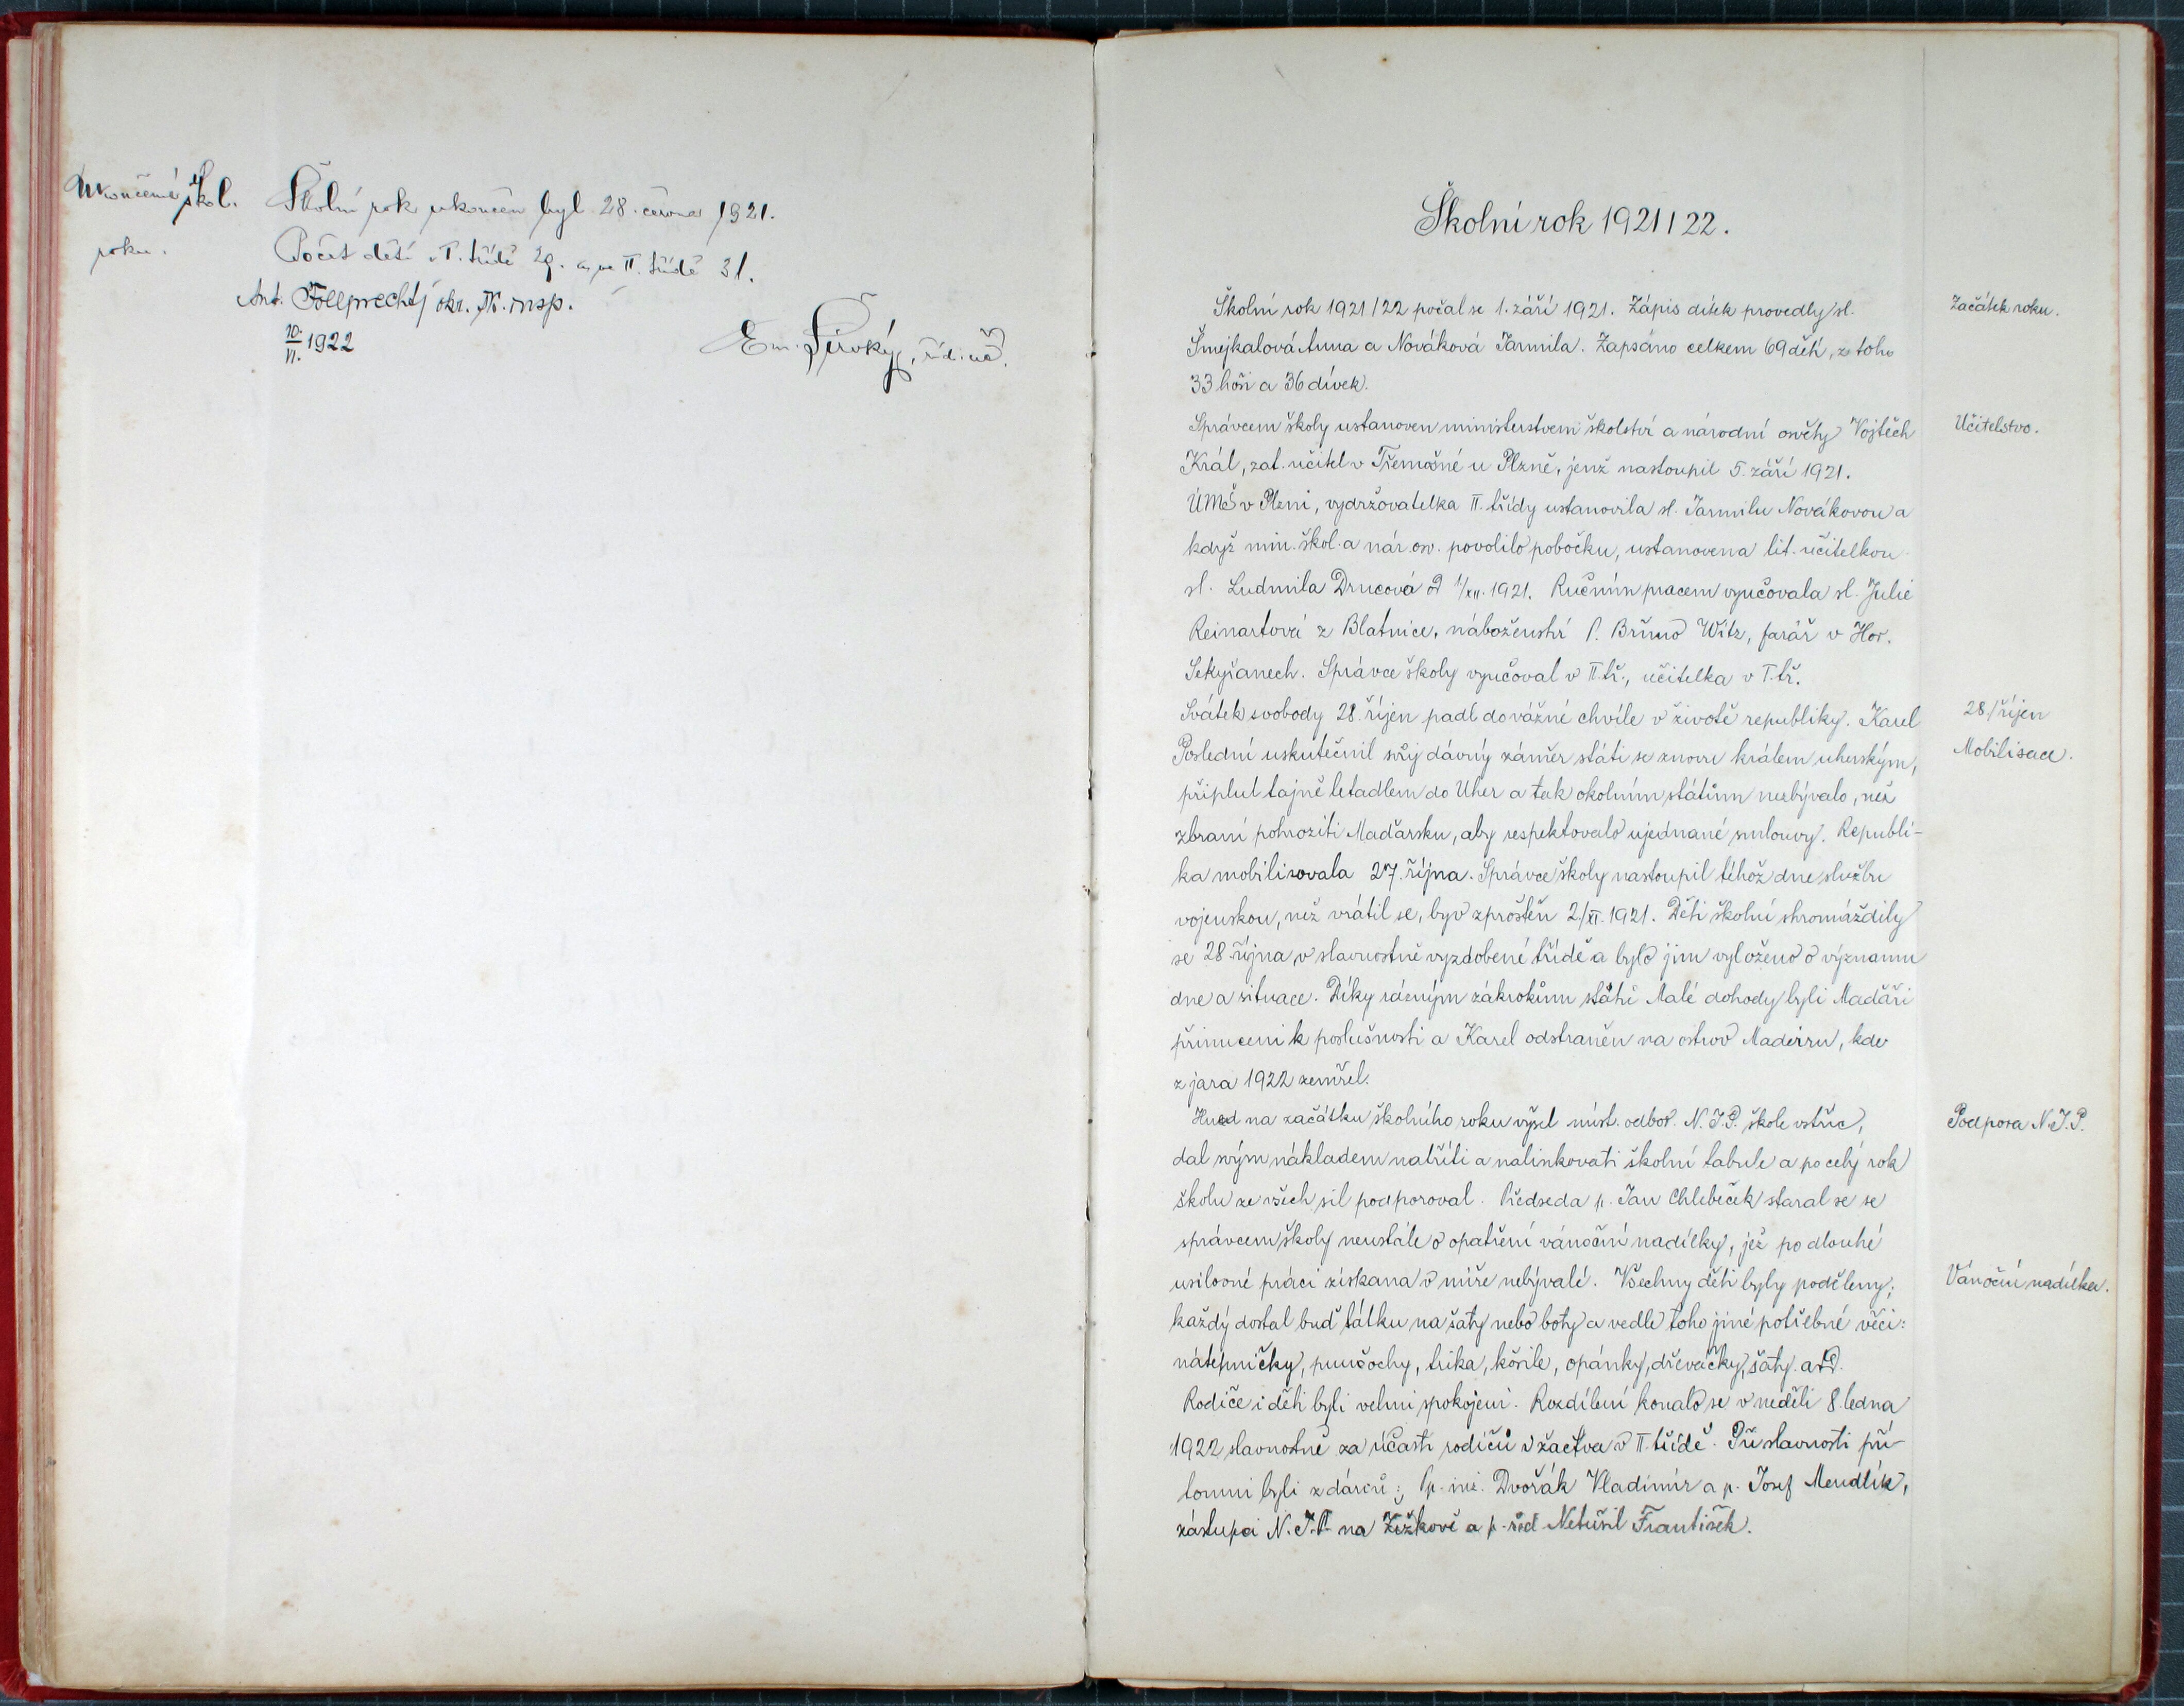 Ukončení škol.
roku.
Školní rok ukončen byl 28. června 1921.
Počet dětí v I. třídě 29. a ve II. třídě 31.
Ant. okr. šk. insp.
10./VI. 1922
Em. Široký, říd. uč.
Školní rok 1921/22.
Školní rok 1921/22 počal se 1. září 1921. Zápis dítek provedly sl.
Začátek roku.
Šmejkalová Anna a Nováková Jarmila. Zapsáno celkem 69 dětí, z toho
33 hoši a 36 dívek.
Správcem školy ustanoven ministerstvem školství a národní osvěty Vojtěch
Učitelstvo.
Král, zat. učitel v Třemošné u Plzně, jenž nastoupil 5. září 1921.
ÚMŠ v Plzni, vydržovatelka II. třídy ustanovila sl. Jarmilu Novákovou a
když min. škol. a nár. osv. povolilo pobočku, ustanovena lit. učitelkou
sl. Ludmila Drucová od 1/XII. 1921. Ručním pracem vyučovala sl. Julie
Reinartová z Blatnice, náboženství P. Bruno Witz, farář v Hor.
Sekyřanech. Správce školy vyučoval v II. tř., učitelka v I. tř.
Svátek svobody 28. říjen padl do vážné chvíle v životě republiky. Karel
28/říjen
Poslední uskutečnil svůj dávný záměr státi se znovu králem uherským,
Mobilisace.
připlul tajně letadlem do Uher a tak okolním státům nezbývalo, než
zbraní pohroziti Maďarsku, aby respektovalo ujednané smlouvy. Republi-
ka mobilisovala 27. října. Správce školy nastoupil téhož dne službu
vojenskou, než vrátil se, byv zproštěn 2/XI. 1921. Děti školní shromáždily
se 28. října v slavnostně vyzdobené třídě a bylo jim vyloženo o významu
dne a situace. Díky rázným zákrokům států Malé dohody byli Maďaři
přinuceni k poslušnosti a Karel odstraněn na ostrov Madeiru, kde
z jara 1922 zemřel.
Hned na začátku školního roku vyšel míst. odbor. N.J.P. škole vstříc,
Podpora N.J.P.
dal svým nákladem natříti a nalinkovati školní tabule a po celý rok
školu ze všech sil podporoval. Předseda p. Jan Chlebeček staral se se
správcem školy neustále o opatření vánoční nadílky, jež po dlouhé
usilovné práci získana v míře nebývalé. Všechny děti byly poděleny;
Vánoční nadílka.
každý dostal buď látku na šaty nebo boty a vedle toho jiné potřebné věci:
nátepničky, punčochy, trika, košile, opánky, dřeváčky, šaty atd.
Rodiče i děti byli velmi spokojeni. Rozdílení konalo se v neděli 8. ledna
1922 slavnostně za účasti rodičů i žactva v II. třídě. Při slavnosti pří-
tomni byli z dárců: Pp. inž. Dvořák Vladimír a p. Josef Mendlík,
zástupci N.J.P. na Žižkově a p. řed. Netušil František.